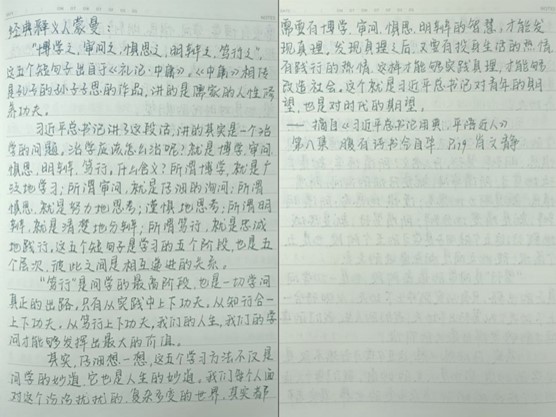 经典释义人蒙曼：
“博学之，审问之，慎思之，明辨之，笃行之”。
这五个短句子出自于《礼记·中庸》，《中庸》相传
是孔子的孙子子思的作品，讲的是儒家的人性修
养功夫。
习近平总书记讲的这段话，讲的其实是一个治
学的问题，治学应该怎么治呢？就是博学、审问、
慎思、明辨、笃行，什么含义？所谓博学，就是广
泛地学习；所谓审问，就是仔细的询问；所谓
慎思，就是努力地思考；谨慎地思考；所谓明
辨，就是清楚地分辨；所谓笃行，就是忠诚
地践行，这五个短句子是学习的五个阶段，也是五
个层次，彼此之间是相互递进的关系。
“笃行”是问学的最高阶段，也是一切学问
真正的出路，只有从实践中上下功夫，从知行合一
上下功夫，从笃行上下功夫，我们的人生，我们的学
问才能够发挥出最大的价值。
其实，仔细想一想，这五个学习方法不仅是
问学的妙道，它也是人生的妙道。我们每个人面
对这个纷纷扰扰的，复杂多变的世界，其实都
需要有博学、审问、慎思、明辨的智慧，才能发
现真理，发现真理之后，又需有投身生活的热情，
有践行的热情，这样才能够实践真理，才能够
改造社会，这个就是习近平总书记对青年的期
望，也是对时代的期望。
——摘自《习近平总书记用典，平语近人》
第八集 腹有诗书气自华 P.29 肖文静